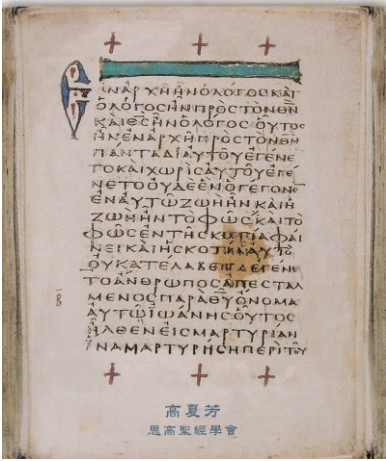 ΕΝΑΡΧΗΗΝΟΛΟΓΟϹΚΑΙ
ΟΛΟΓΟϹΗΝΠΡΟϹΤΟΝΘΝ
ΚΑΙΘϹΗΝΟΛΟΓΟϹΟΥΤΟϹ
ΗΝΕΝΑΡΧΗΠΡΟϹΤΟΝΘΝ
ΠΑΝΤΑΔΙΑΥΤΟΥΕΓΕΝΕ
ΤΟΚΑΙΧΩΡΙϹΑΥΤΟΥΕΓΕ
ΝΕΤΟΟΥΔΕΕΝΟΓΕΓΟΝΕ
ΕΝΑΥΤΩΖΩΗΗΝΚΑΙΗ
ΖΩΗΗΝΤΟΦΩϹΚΑΙΤΟ
ΦΩϹΕΝΤΗϹΚΟΤΙΑΦΑΙ
ΝΕΙΚΑΙΗϹΚΟΤΙΑΑΥΤΟ
ΟΥΚΑΤΕΛΑΒΕΝΕΓΕΝΕ
ΤΟΑΝΘΡΩΠΟϹΑΠΕϹΤΑΛ
ΜΕΝΟϹΠΑΡΑΘΥΟΝΟΜΑ
ΑΥΤΩΙΩΑΝΗϹΟΥΤΟϹ
ΗΛΘΕΝΕΙϹΜΑΡΤΥΡΙΑΝ
ΙΝΑΜΑΡΤΥΡΗϹΗΠΕΡΙΤΟΥ
Β
高夏芳
思高聖經學會